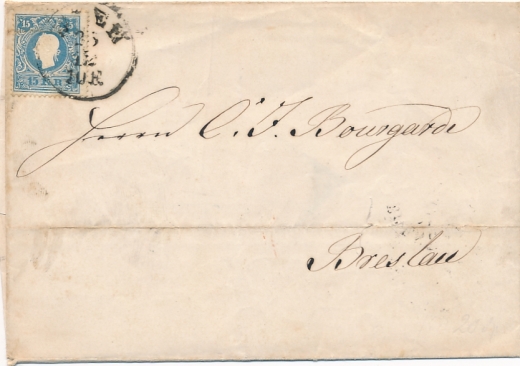 15
15 KR
WIEN
12
10 F.
Herrn C. F. Bourgarde
Breslau